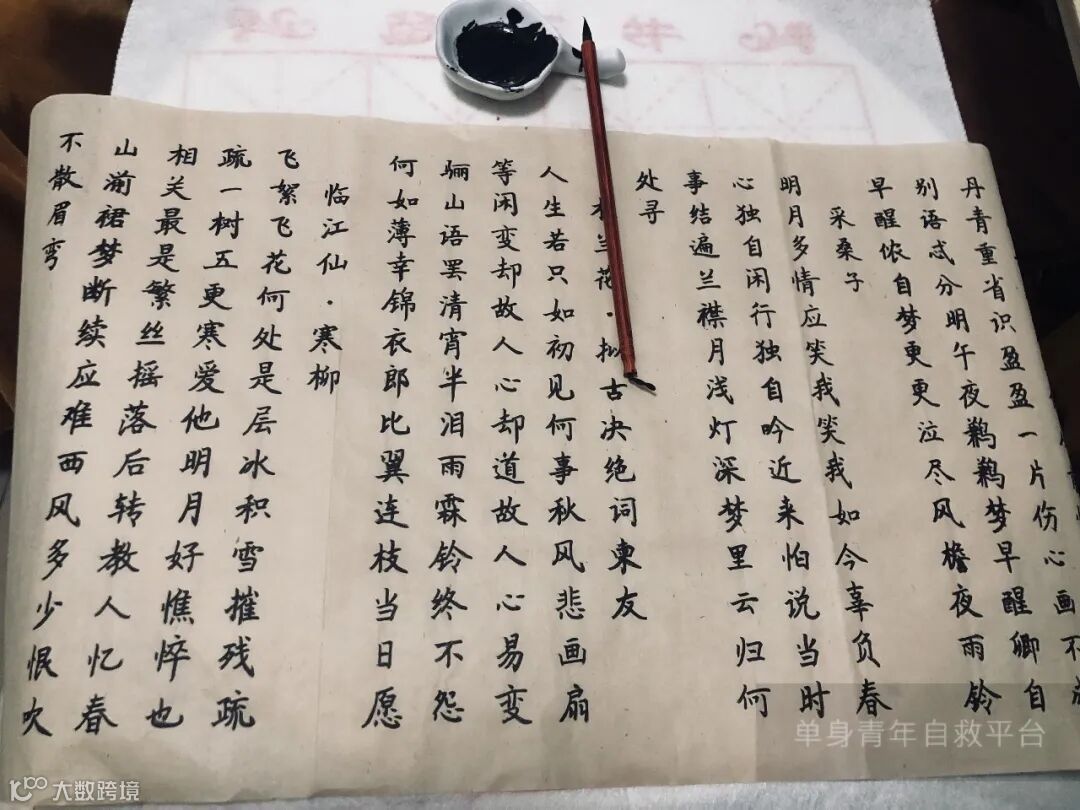 丹青重省识盈盈一片伤心画不
别语忒分明午夜鹣鹣梦早醒卿自
早醒侬自梦更更泣尽风檐夜雨铃
采桑子
明月多情应笑我笑我如今辜负春
心独自闲行独自吟近来怕说当时
事结遍兰襟月浅灯深梦里云归何
处寻
木兰花·拟古决绝词柬友
人生若只如初见何事秋风悲画扇
等闲变却故人心却道故人心易变
骊山语罢清宵半泪雨霖铃终不怨
何如薄幸锦衣郎比翼连枝当日愿
临江仙·寒柳
飞絮飞花何处是层冰积雪摧残疏
疏一树五更寒爱他明月好憔悴也
相关最是繁丝摇落后转教人忆春
山湔裙梦断续应难西风多少恨吹
不散眉弯
单身青年自救平台
大数跨境